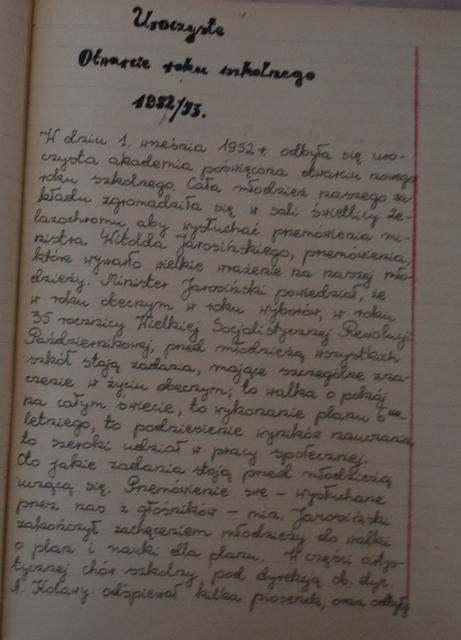 Uroczyste
Otwarcie roku szkolnego
1952/53.
W dniu 1. września 1952 r. odbyła się uro-
czysta akademia poświęcona otwarciu nowego
roku szkolnego. Cała młodzież naszego za-
kładu zgromadziła się w sali świetlicy Że-
lazochromu aby wysłuchać przemówienia mi-
nistra Witolda Jarosińskiego, przemówienia,
które wywarło wielkie wrażenie na naszej mło-
dzieży. Minister Jarosiński powiedział, że
w roku obecnym w roku wyborów, w roku
35 rocznicy Wielkiej Socjalistycznej Rewolucji
Październikowej, przed młodzieżą wszystkich
szkół stają zadania, mające szczególne zna-
czenie w życiu obecnym; to walka o pokój
na całym świecie, to wykonanie planu 6-cio
letniego, to podniesienie wyników nauczania,
to szeroki udział w pracy społecznej.
Oto jakie zadania stoją przed młodzieżą
uczącą się. Przemówienie swe – wysłuchane
przez nas z głośników – min. Jarosiński
zakończył zachęceniem młodzieży do walki
o plan i nauki dla planu. W części artys-
tycznej chór szkolny pod dyrekcją ob. dyr.
A. Kolawy odśpiewał kilka piosenek, oraz odbyły